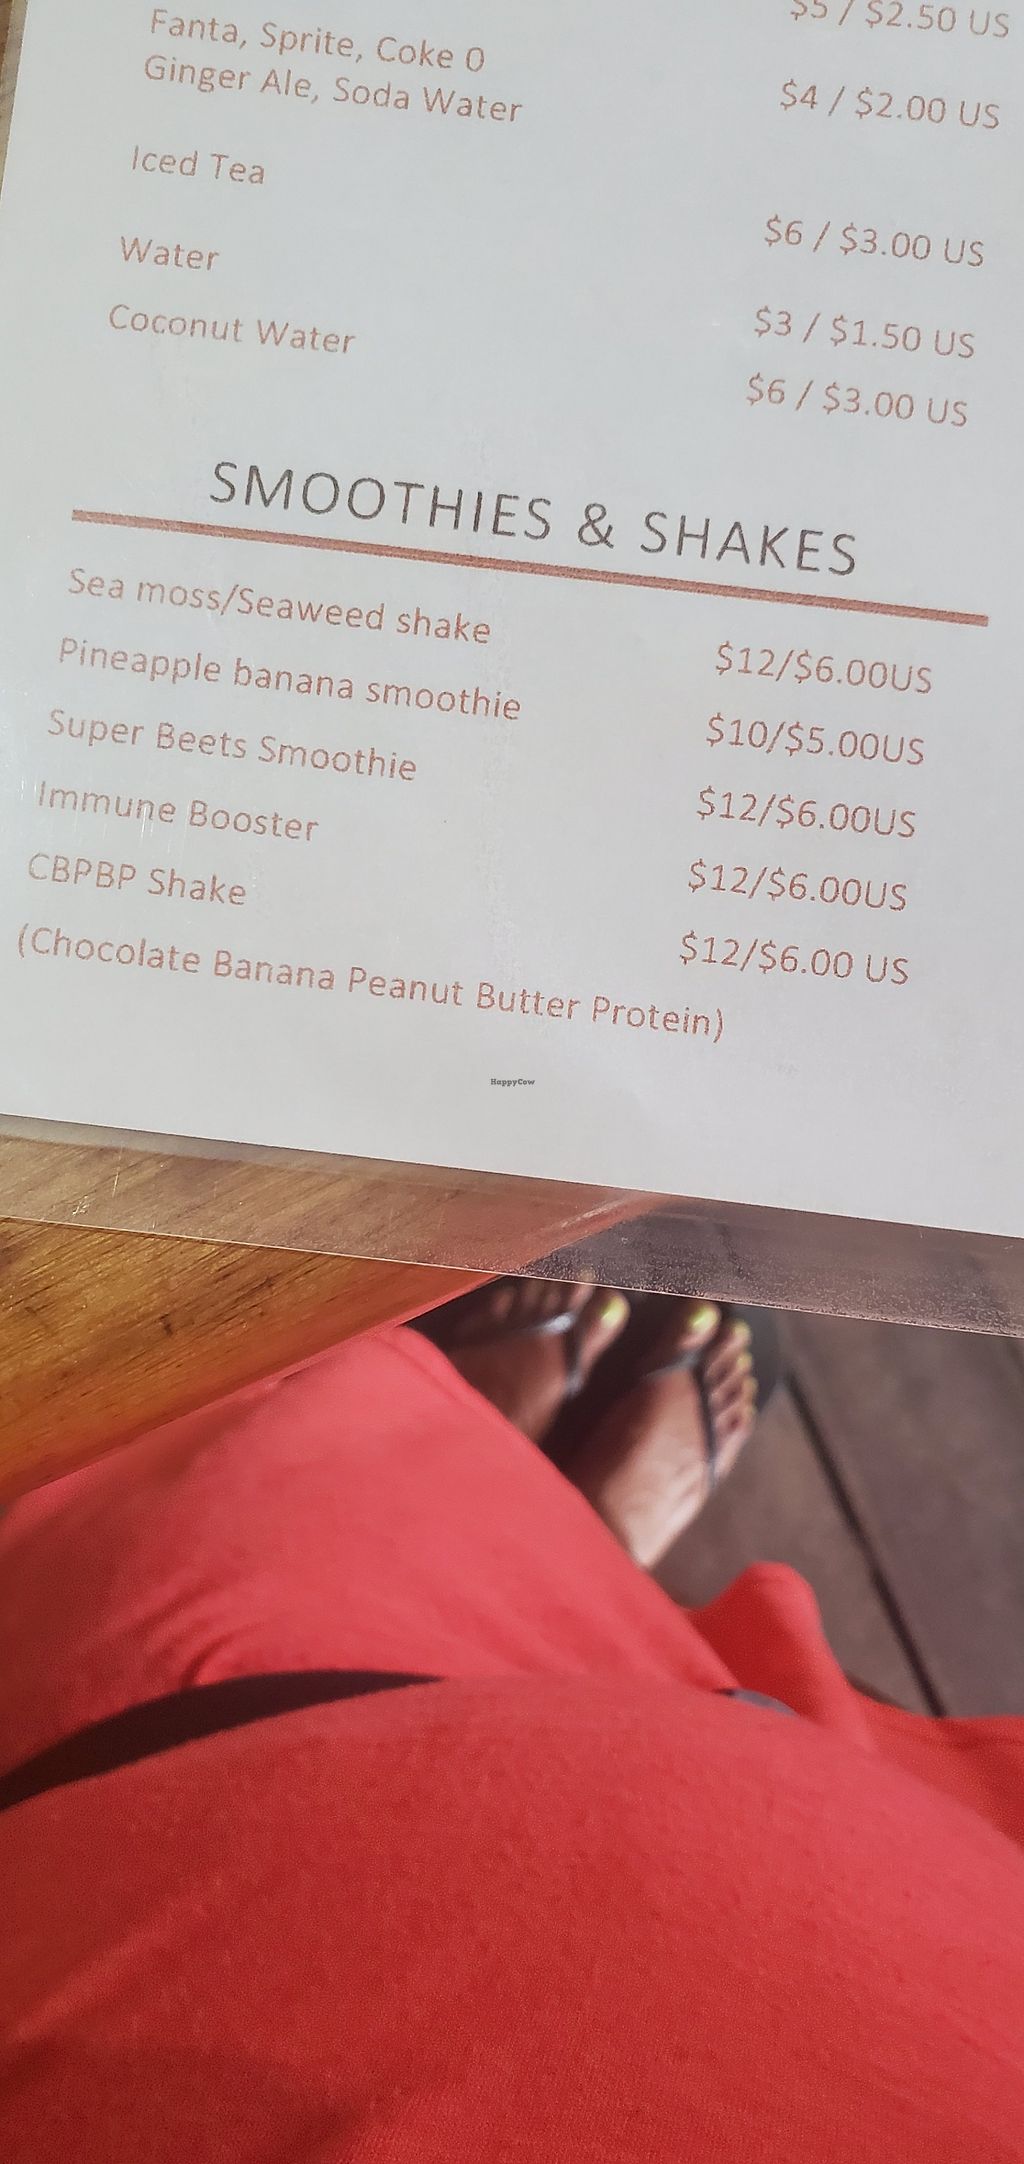 $5 / $2.50 US
Fanta, Sprite, Coke 0
Ginger Ale, Soda Water $4 / $2.00 US
Iced Tea $6 / $3.00 US
Water $3 / $1.50 US
Coconut Water $6 / $3.00 US
SMOOTHIES & SHAKES
Sea moss/Seaweed shake $12/$6.00US
Pineapple banana smoothie $10/$5.00US
Super Beets Smoothie $12/$6.00US
Immune Booster $12/$6.00US
CBPBP Shake $12/$6.00 US
(Chocolate Banana Peanut Butter Protein)
HappyCow